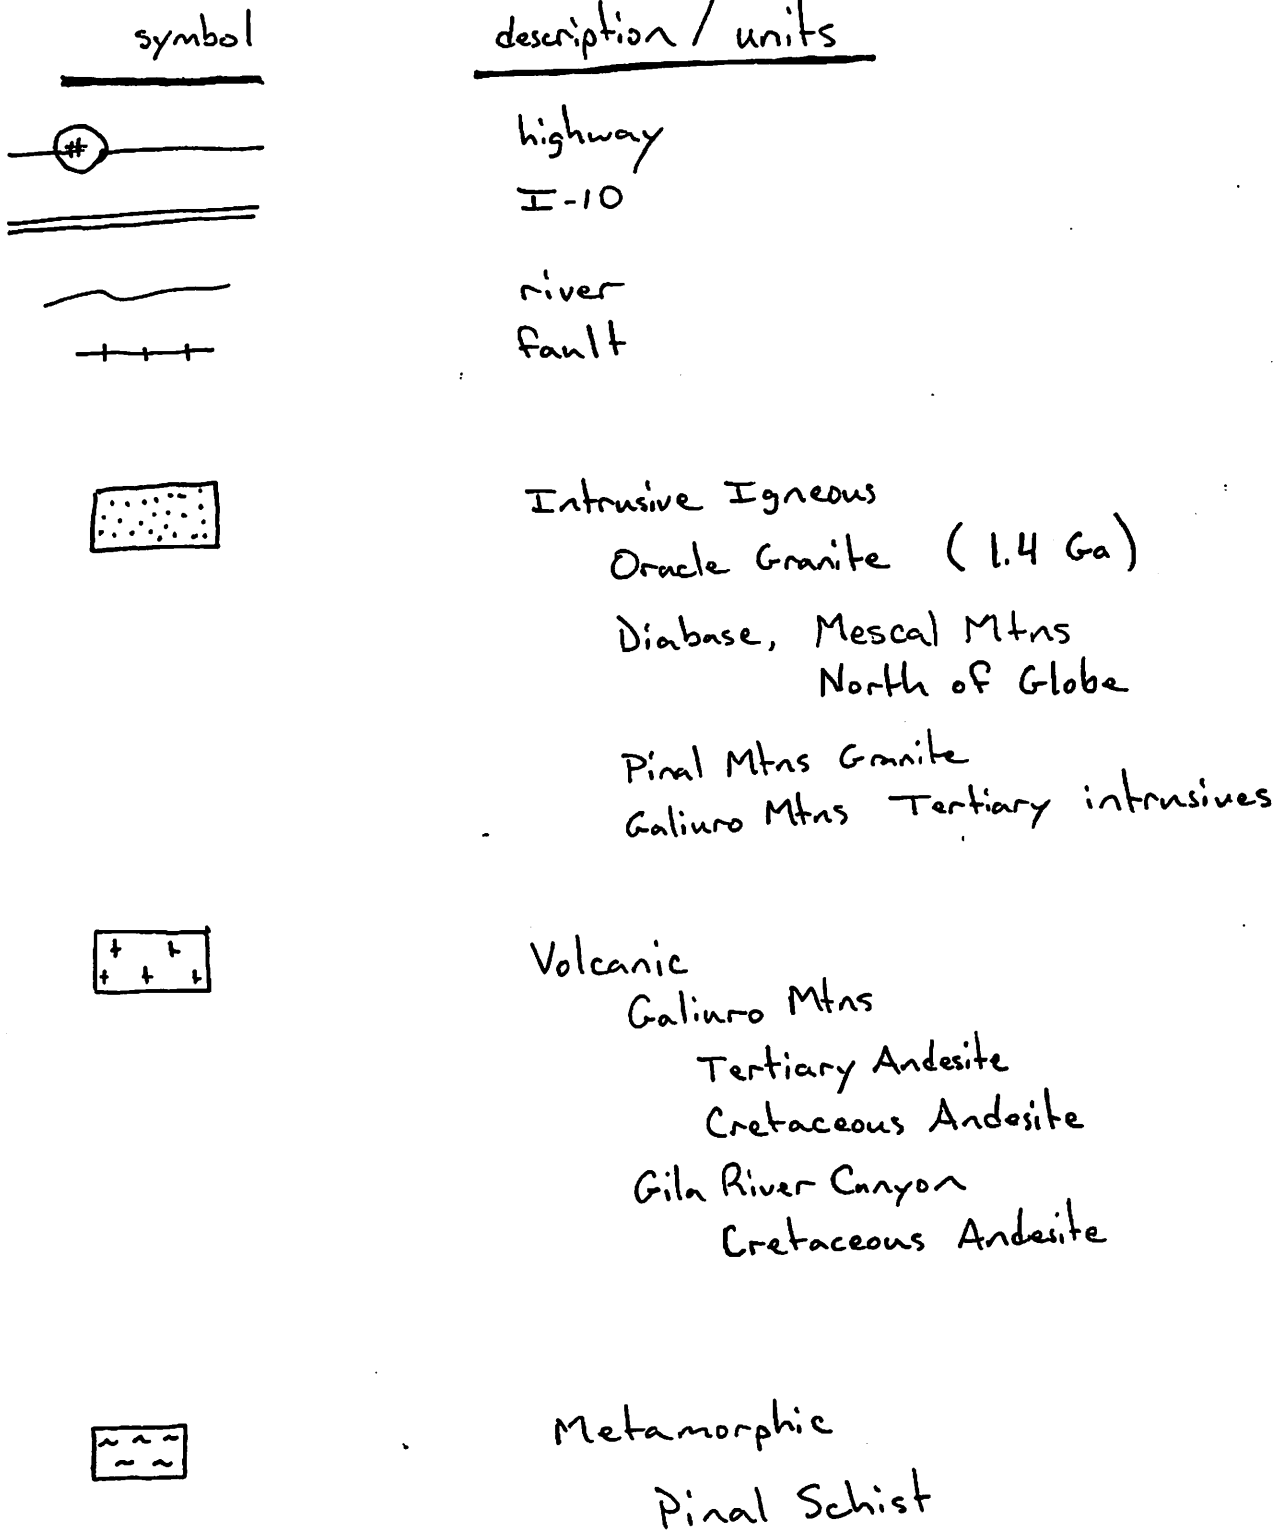 symbol description / units
# highway
I-10
river
fault
Intrusive Igneous
Oracle Granite (1.4 Ga)
Diabase, Mescal Mtns
North of Globe
Pinal Mtns Granite
Galiuro Mtns Tertiary intrusives
Volcanic
Galiuro Mtns
Tertiary Andesite
Cretaceous Andesite
Gila River Canyon
Cretaceous Andesite
Metamorphic
Pinal Schist